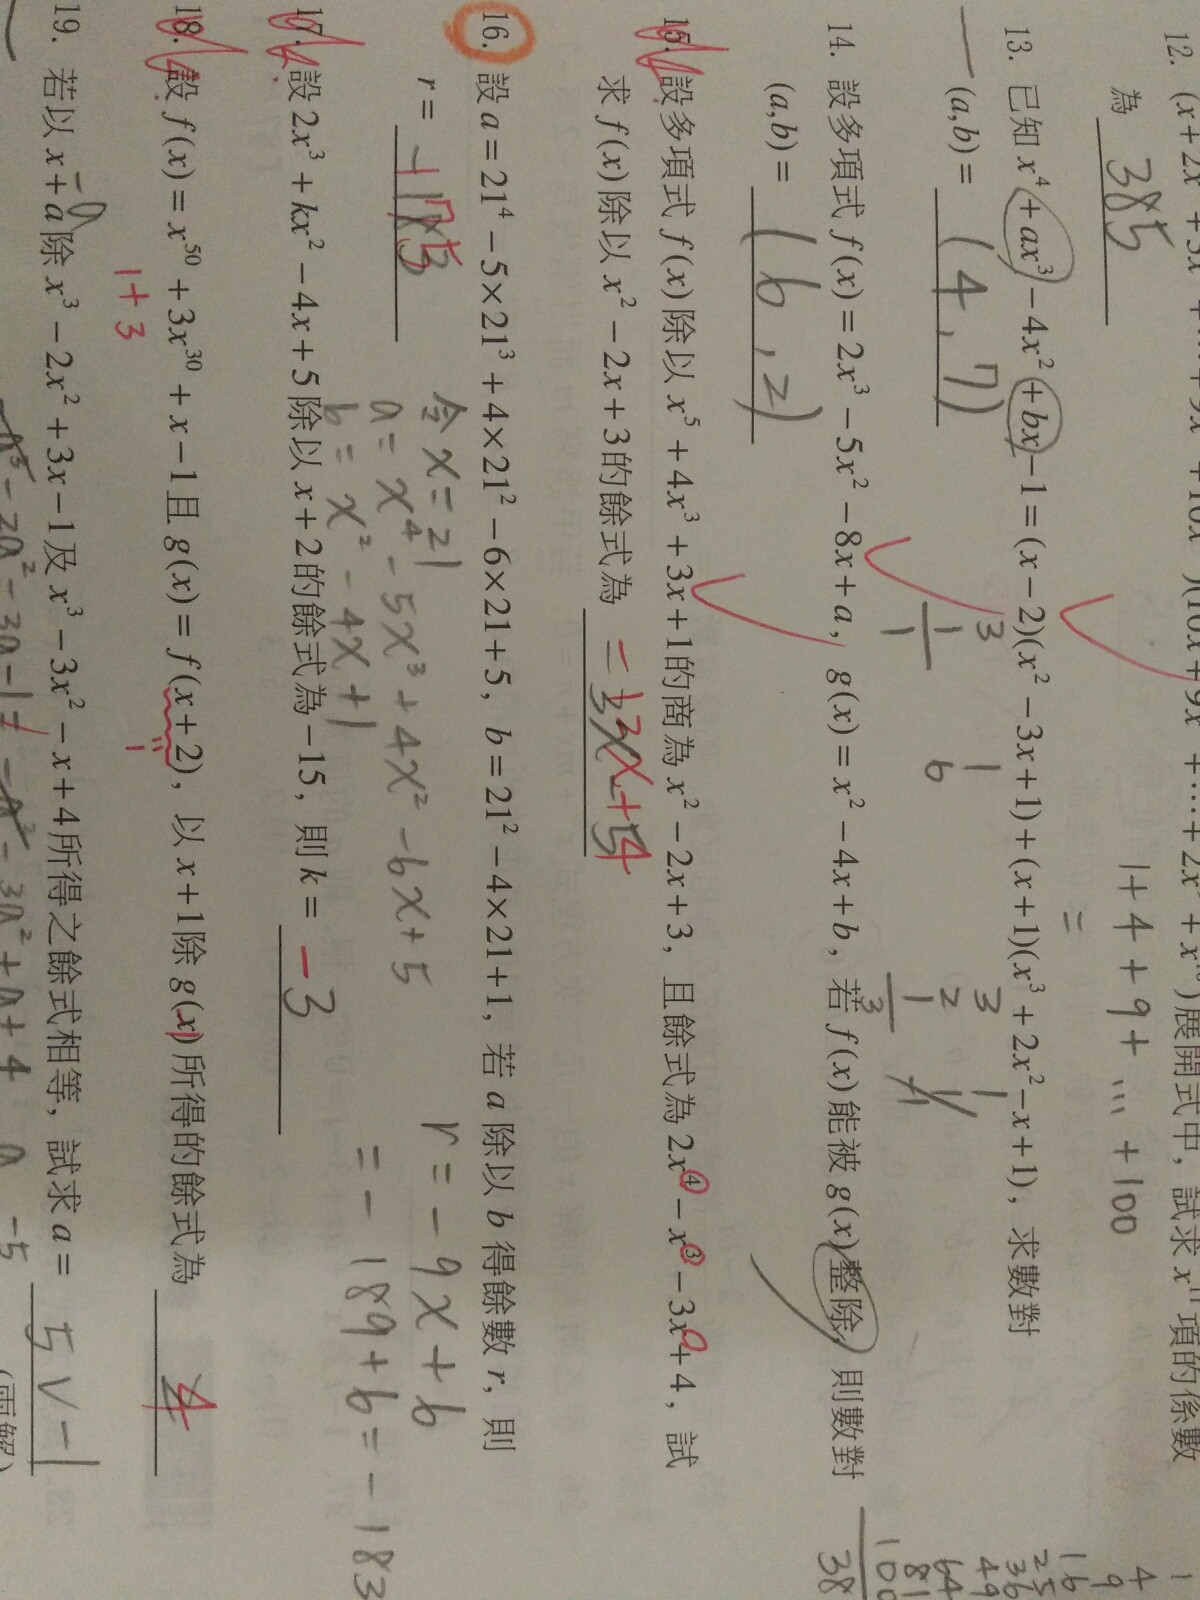 12. (x+2x
展開式中，試求 x¹¹ 項的係數
為 385
1+4+9+ … +100
=
13. 已知 x⁴+ax³-4x²+bx-1=(x-2)(x²-3x+1)+(x+1)(x³+2x²-x+1)，求數對
(a,b)= (4,7)
14. 設多項式 f(x)=2x³-5x²-8x+a，g(x)=x²-4x+b，若 f(x)能被 g(x)整除，則數對
(a,b)= (6,2)
15. 設多項式 f(x)除以 x⁵+4x³+3x+1的商為 x²-2x+3，且餘式為 2x⁴-x³-3x+4，試
求 f(x)除以 x²-2x+3的餘式為
16. 設 a=21⁴-5×21³+4×21²-6×21+5，b=21²-4×21+1，若 a 除以 b 得餘數 r，則
r=
令 x=21
a=x⁴-5x³+4x²-6x+5
b=x²-4x+1
r=-9x+6
=-189+6=-183
17. 設 2x³+kx²-4x+5除以 x+2的餘式為-15，則 k= -3
18. 設 f(x)=x⁵⁰+3x³⁰+x-1且 g(x)=f(x+2)，以 x+1除 g(x)所得的餘式為 4
1+3
1
19. 若以 x+a 除 x³-2x²+3x-1及 x³-3x²-x+4所得之餘式相等，試求 a= 5∨-1
1
4
9
16
25
36
49
64
81
100
38